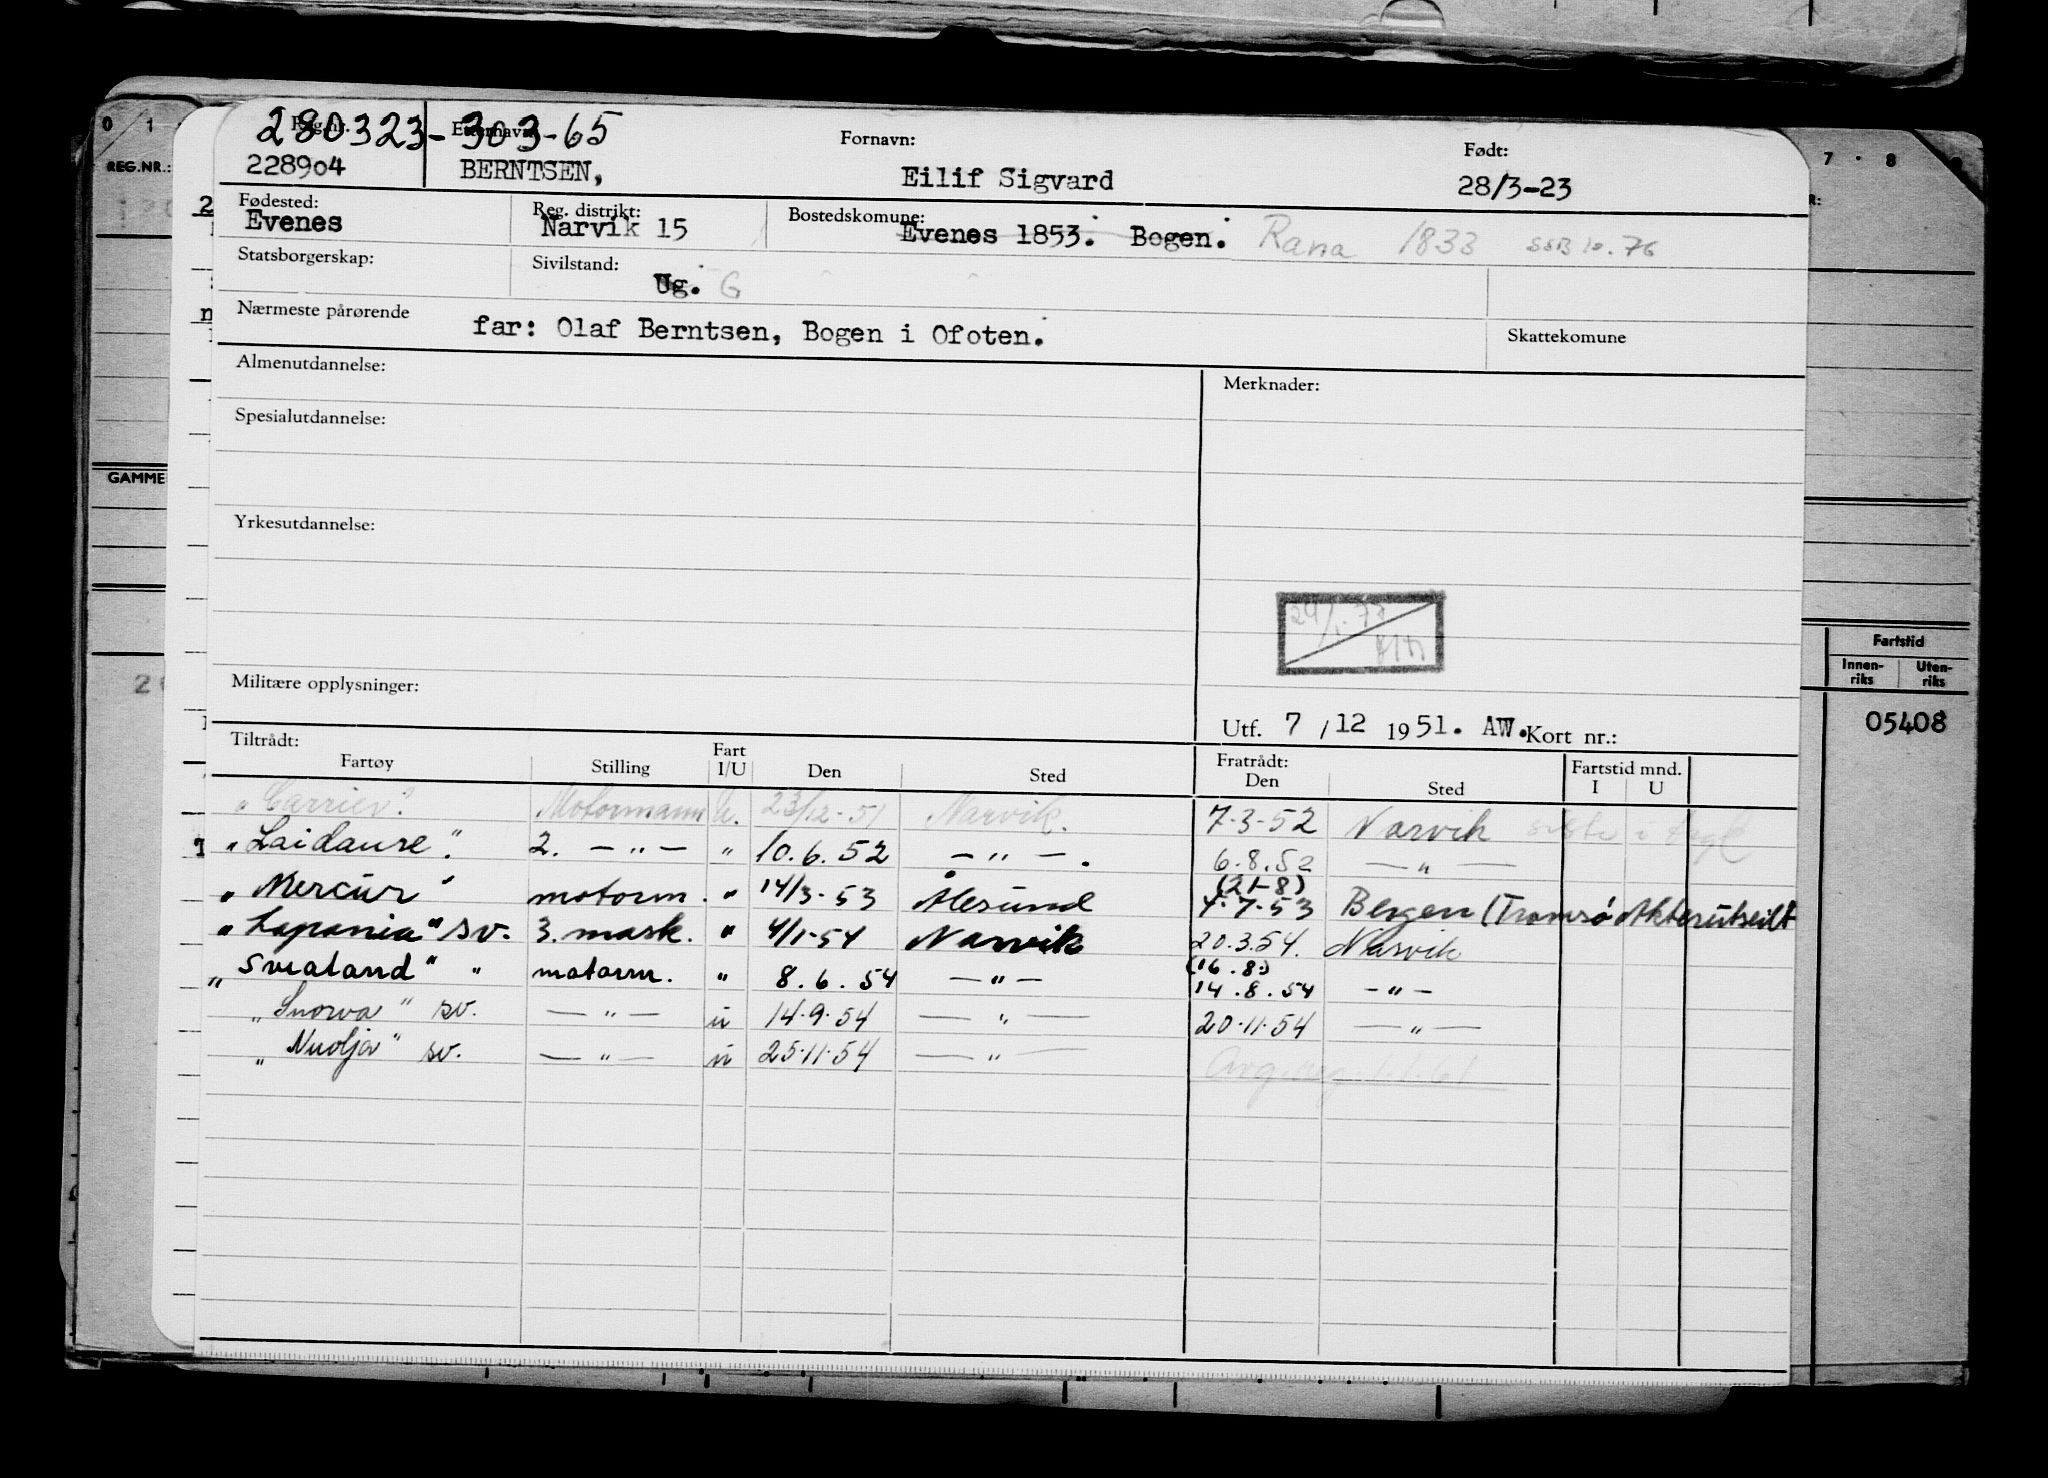 0 1
REG.NR.:
GAMME
7 · 8
Fartstid
Innen-riks Uten-riks
05408
280323-303-65
Reg.nr. Etternavn: Fornavn: Født:
228904 BERNTSEN, Eilif Sigvard 28/3-23
Fødested: Reg. distrikt: Bostedskomune:
Evenes Narvik 15 Evenes 1853. Bogen. Rana 1833 SSB 10.76
Statsborgerskap: Sivilstand:
Ug. G
Nærmeste pårørende far: Olaf Berntsen, Bogen i Ofoten.
Skattekomune
Almenutdannelse: Merknader:
Spesialutdannelse:
Yrkesutdannelse:
Militære opplysninger:
Utf. 7 / 12 1951. AW. Kort nr.:
Tiltrådt: Fratrådt: Fartstid mnd.
Fartøy Stilling Fart I/U Den Sted Den Sted I U
"Carrier". Motormann U. 23/12-51 Narvik. 7-3-52 Narvik
"Laidaure". 2. — " — " 10.6.52 — " —. 6.8.52 — " —
(21-8)
"Mercur" motorm. " 14/3-53 Ålesund 4-7-53 Bergen (Tromsø Akterutseilt
"Lapania" sv. 3. mask. " 4/1-54 Narvik 20.3.54. Narvik
(16.8.)
"Svealand" " motorm. " 8.6.54 — " — 14.8.54 — " —
"Snorva" sv. — " — u 14.9.54 — " — 20.11.54 — " —
"Nuolja" sv. — " — u 25.11.54 — " —